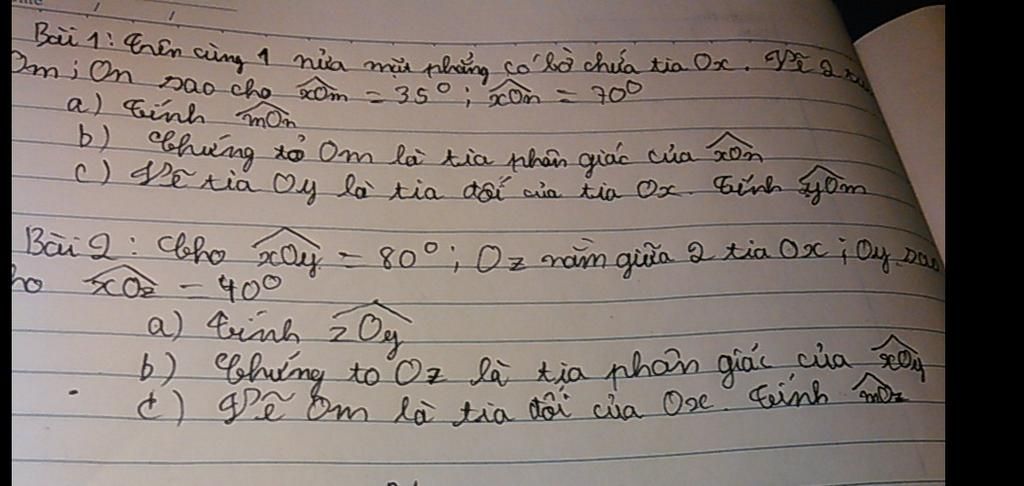 Bài 1: trên cùng 1 nửa mặt phẳng có bờ chứa tia Ox. Vẽ 2 tia
Om; On sao cho xOm = 35°; xOn = 70°
a) tính mOn
b) Chứng tỏ Om là tia phân giác của xOn
c) Vẽ tia Oy là tia đối của tia Ox. tính yOm
Bài 2: Cho xOy = 80°; Oz nằm giữa 2 tia Ox; Oy sao
ho xOz = 40°
a) tính zOy
b) Chứng to Oz là tia phân giác của xOy
c) Vẽ Om là tia đối của Ox. tính mOz